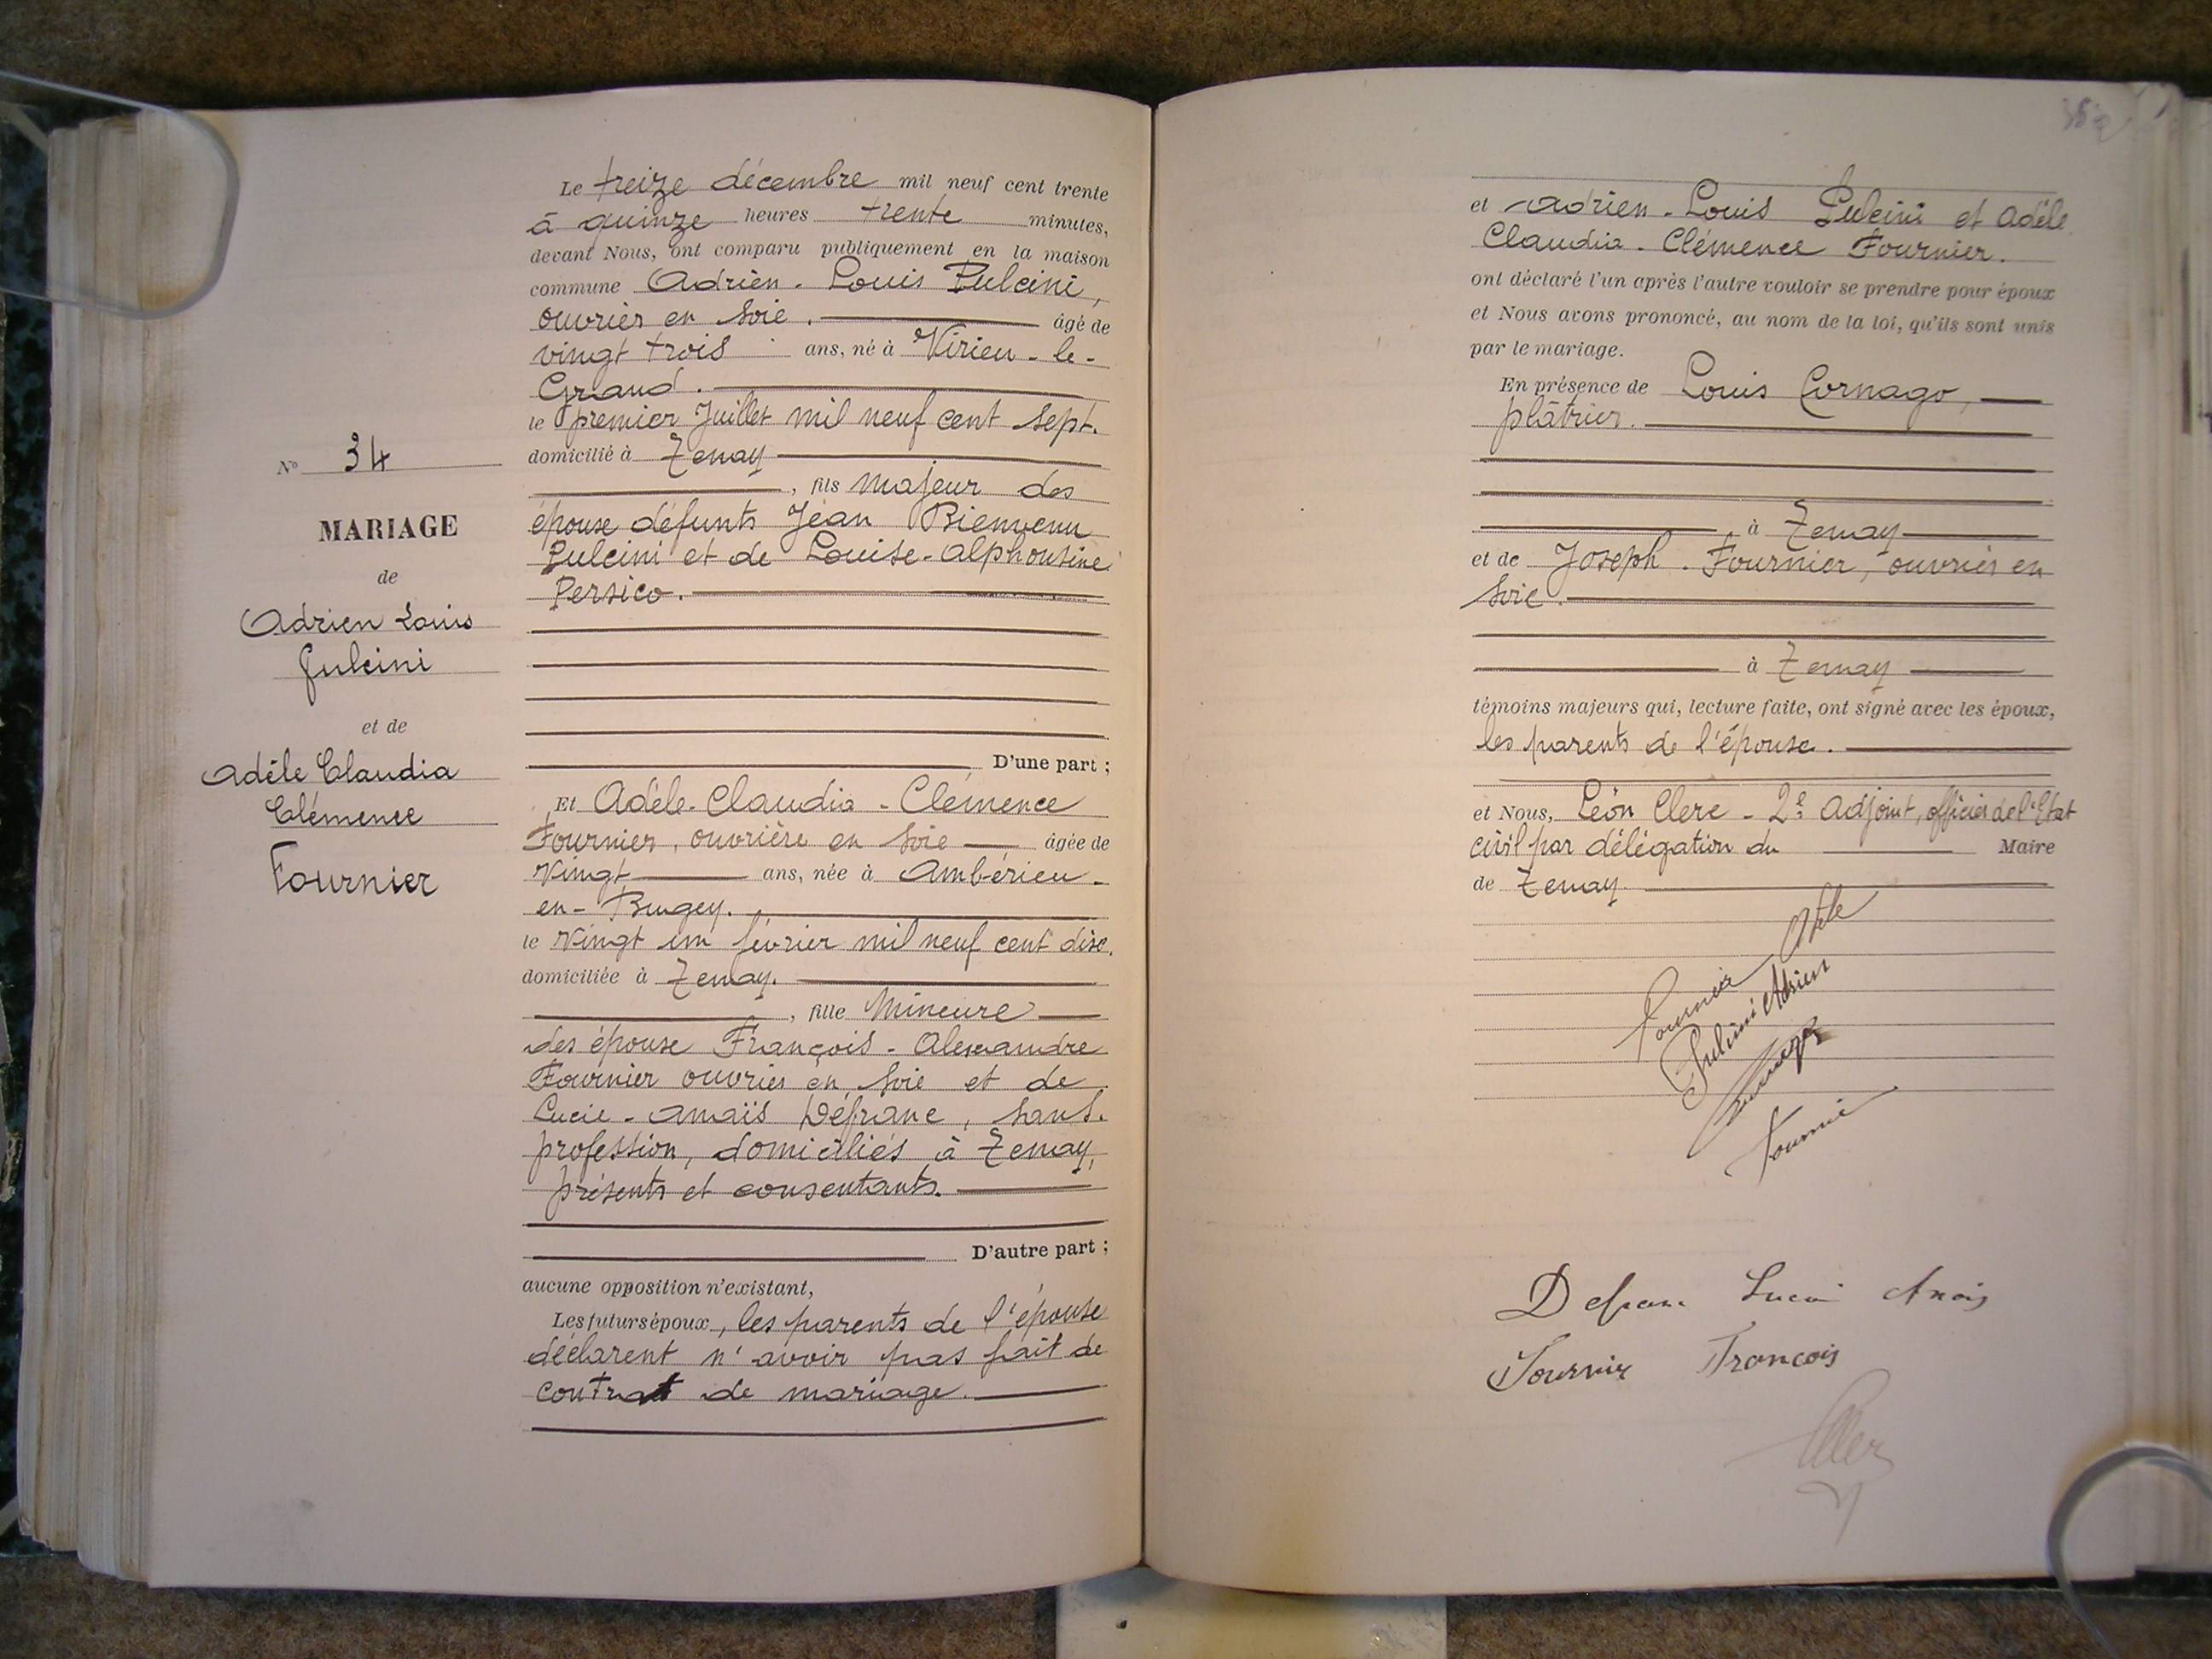 Le treize décembre mil neuf cent trente
à quinze heures trente minutes,
devant Nous, ont comparu publiquement en la maison
commune Adrien - Louis Pulcini,
ouvrier en soie. âgé de
vingt trois ans, né à Virieu - le -
Grand.
le premier Juillet mil neuf cent sept.
domicilié à Tenay
, fils majeur des
époux défunts Jean Bienvenu
Pulcini et de Louise - Alphonsine
Persico.
D'une part ;
Et Adèle - Claudia - Clémence
Fournier, ouvrière en soie âgée de
vingt ans, née à Ambérieu -
en - Bugey.
le vingt un février mil neuf cent dix.
domiciliée à Tenay.
, fille mineure
des époux François - Alexandre
Fournier ouvrier en soie et de
Lucie - Anaïs Défranc, sans
profession, domiciliés à Tenay,
présents et consentants.
D'autre part ;
aucune opposition n'existant,
Les futurs époux, les parents de l'épouse
déclarent n'avoir pas fait de
contrat de mariage.
N° 34
MARIAGE
de
Adrien Louis
Pulcini
et de
Adèle Claudia
Clémence
Fournier
et Adrien - Louis Pulcini et Adèle
Claudia - Clémence Fournier.
ont déclaré l'un après l'autre vouloir se prendre pour époux
et Nous avons prononcé, au nom de la loi, qu'ils sont unis
par le mariage.
En présence de Louis Cornago,
plâtrier.
à Tenay
et de Joseph - Fournier, ouvrier en
soie.
à Tenay
témoins majeurs qui, lecture faite, ont signé avec les époux,
les parents de l'épouse.
et Nous, Léon Clerc - 2e adjoint, officier de l'Etat
civil par délégation du Maire
de Tenay
Fournier Adèle
Pulcini Adrien
Cornago
Fournier
Defranc Lucie Anaïs
Fournier François